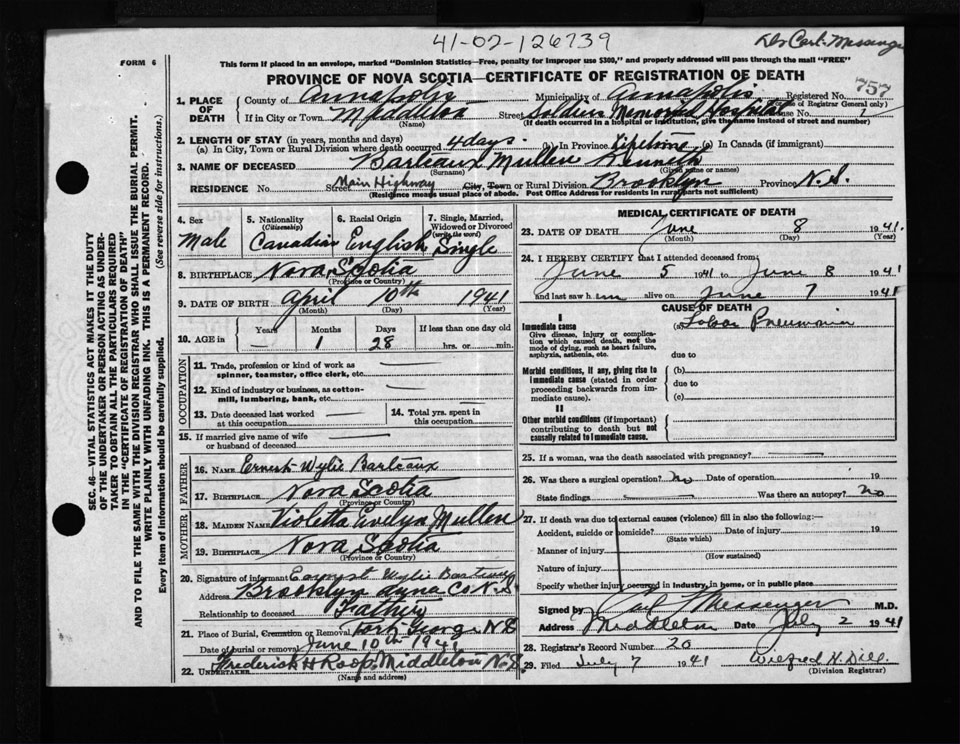 41-02-126739
Dr Carl Messenger
FORM 6
This form if placed in an envelope, marked "Dominion Statistics—Free, penalty for improper use $300," and properly addressed will pass through the mail "FREE"
PROVINCE OF NOVA SCOTIA—CERTIFICATE OF REGISTRATION OF DEATH
757
1. PLACE OF DEATH County of Annapolis Municipality of Annapolis Registered No.
(For use of Registrar General only)
If in City or Town Middleton Street Soldiers Memorial Hospital House No.
(Name) (If death occurred in a hospital or institution, give the name instead of street and number)
2. LENGTH OF STAY (in years, months and days)
(a) In City, Town or Rural Division where death occurred 4 days. (b) In Province Lifetime (c) In Canada (if immigrant)
3. NAME OF DECEASED Barteaux Mullen Kenneth
(Surname) (Given name or names)
RESIDENCE No. Street Main Highway City, Town or Rural Division Brooklyn Province N.S.
(Residence means usual place of abode. Post Office Address for residents in rural parts not sufficient)
4. Sex Male
5. Nationality (Citizenship) Canadian
6. Racial Origin English
7. Single, Married, Widowed or Divorced (write the word) Single
8. BIRTHPLACE Nova Scotia
(Province or Country)
9. DATE OF BIRTH April 10th 1941
(Month) (Day) (Year)
10. AGE in Years — Months 1 Days 28 If less than one day old hrs. or min.
OCCUPATION
11. Trade, profession or kind of work as spinner, teamster, office clerk, etc. —
12. Kind of industry or business, as cotton-mill, lumbering, bank, etc. —
13. Date deceased last worked at this occupation —
14. Total yrs. spent in this occupation —
15. If married give name of wife or husband of deceased —
FATHER
16. NAME Ernest Wylie Barteaux
17. BIRTHPLACE Nova Scotia
(Province or Country)
MOTHER
18. MAIDEN NAME Violetta Evelyn Mullen
19. BIRTHPLACE Nova Scotia
(Province or Country)
20. Signature of informant Ernest Wylie Barteaux
Address Brooklyn Anna Co N.S
Relationship to deceased Father
21. Place of Burial, Cremation or Removal Port George N.S
Date of burial or removal June 10th 1941
22. UNDERTAKER Frederick H Roop, Middleton N.S.
(Name and address)
MEDICAL CERTIFICATE OF DEATH
23. DATE OF DEATH June 8 1941.
(Month) (Day) (Year)
24. I HEREBY CERTIFY that I attended deceased from
June 5 1941 to June 8 1941
and last saw him alive on June 7 1941
CAUSE OF DEATH
I
Immediate cause (a) Lobar Pneumonia
Give disease, injury or complication which caused death, not the mode of dying, such as heart failure, asphyxia, asthenia, etc.
due to
Morbid conditions, if any, giving rise to immediate cause (stated in order proceeding backwards from immediate cause)
(b)
due to
(c)
II
Other morbid conditions (if important) contributing to death but not causally related to immediate cause.
25. If a woman, was the death associated with pregnancy? —
26. Was there a surgical operation? no Date of operation 19
State findings — Was there an autopsy? no
27. If death was due to external causes (violence) fill in also the following:—
Accident, suicide or homicide? Date of injury 19
(State which)
Manner of injury
(How sustained)
Nature of injury
Specify whether injury occurred in industry, in home, or in public place
Signed by Carl Messenger M.D.
Address Middleton Date July 2 1941
28. Registrar's Record Number 20
29. Filed July 7 1941 Wilfred H. Dill
(Division Registrar)
SEC. 46—VITAL STATISTICS ACT MAKES IT THE DUTY
OF THE UNDERTAKER OR PERSON ACTING AS UNDER-
TAKER TO OBTAIN ALL THE PARTICULARS REQUIRED
IN THE "CERTIFICATE OF REGISTRATION OF DEATH"
AND TO FILE THE SAME WITH THE DIVISION REGISTRAR WHO SHALL ISSUE THE BURIAL PERMIT.
WRITE PLAINLY WITH UNFADING INK. THIS IS A PERMANENT RECORD.
Every item of information should be carefully supplied. (See reverse side for instructions.)